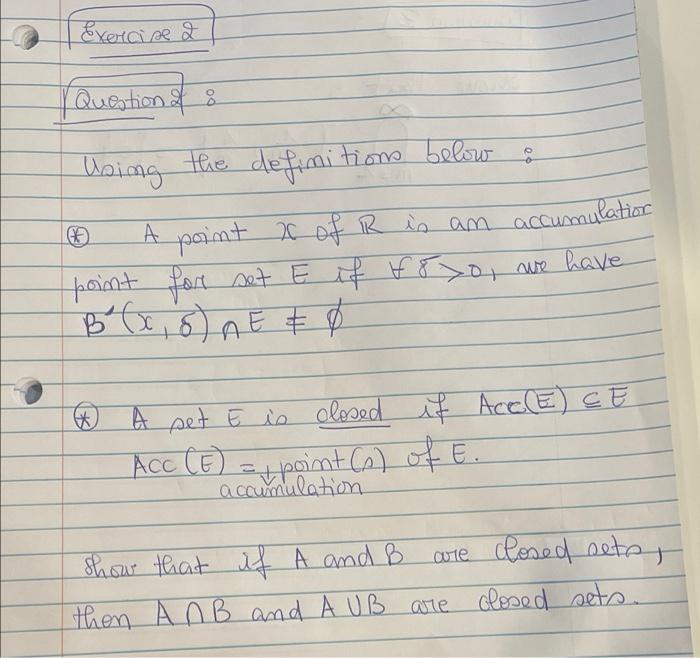 Exercise 2
Question 2 :
Using the definitions below :
* A point x of ℝ is an accumulation
point for set E if ∀ δ > 0, we have
B'(x, δ) ∩ E ≠ ∅
* A set E is closed if Acc(E) ⊆ E
Acc (E) = point(s) of E.
accumulation
Show that if A and B are closed sets,
then A ∩ B and A ∪ B are closed sets.